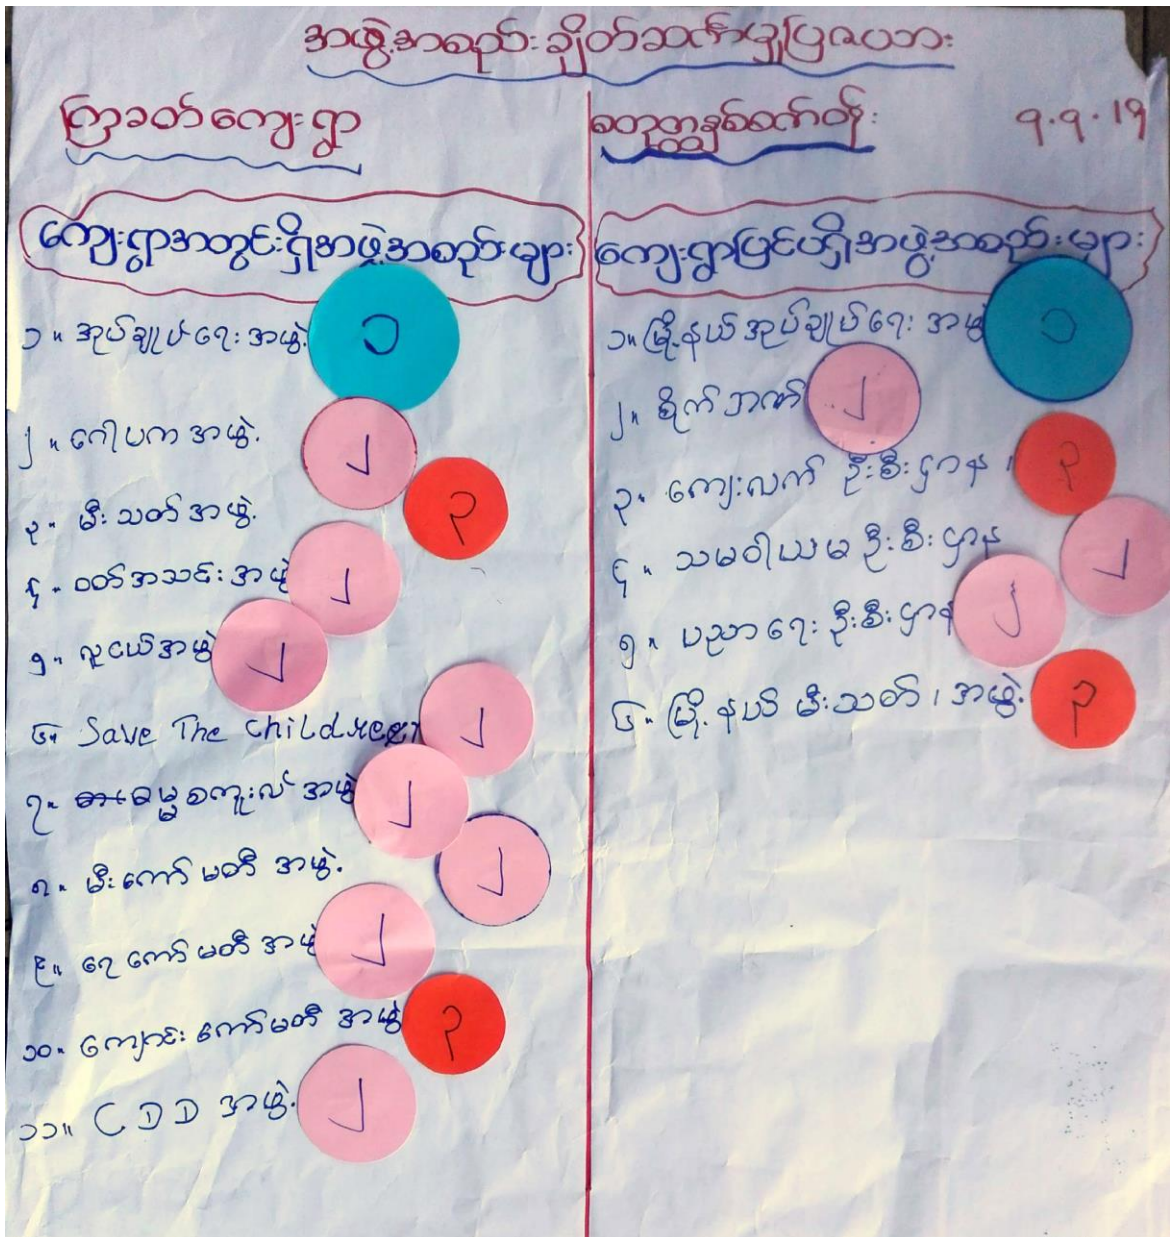 အဖွဲ့အစည်းချိတ်ဆက်မှုပြဇယား
ကြာခတ်ကျေးရွာ
စတုတ္ထနှစ်စက်ဝန်း ၅.၅.၁၅
ကျေးရွာအတွင်းရှိအဖွဲ့အစည်းများ
၁။ အုပ်ချုပ်ရေးအဖွဲ့ ၁
၂။ ဂေါပကအဖွဲ့ ၂
၃။ မီးသတ်အဖွဲ့ ၃
၄။ ဝတ်အသင်းအဖွဲ့ ၂
၅။ လူငယ်အဖွဲ့ ၂
၆။ Save The Children ၂
၇။ ဓမ္မစကူးလ်အဖွဲ့ ၂
၈။ မီးကော်မတီအဖွဲ့ ၂
၉။ ရေကော်မတီအဖွဲ့ ၂
၁၀။ ကျောင်းကော်မတီအဖွဲ့ ၃
၁၁။ CDD အဖွဲ့ ၂
ကျေးရွာပြင်ပရှိအဖွဲ့အစည်းများ
၁။ မြို့နယ်အုပ်ချုပ်ရေးအဖွဲ့ ၁
၂။ စိုက်ဘဏ် ၂
၃။ ကျေးလက်ဦးစီးဌာန ၃
၄။ သမဝါယမဦးစီးဌာန ၂
၅။ ပညာရေးဦးစီးဌာန ၂
၆။ မြို့နယ်မီးသတ်၊အဖွဲ့ ၃